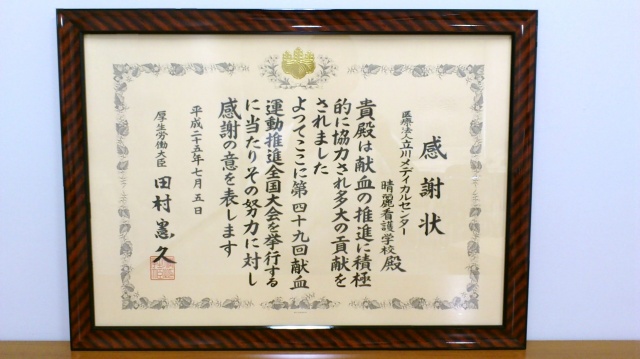 感謝状
医療法人立川メディカルセンター
晴麗看護学校 殿
貴殿は献血の推進に積極
的に協力され多大の貢献を
されました
よつてここに第四十九回献血
運動推進全国大会を挙行する
に当たりその努力に対し
感謝の意を表します
平成二十五年七月五日
厚生労働大臣 田村憲久